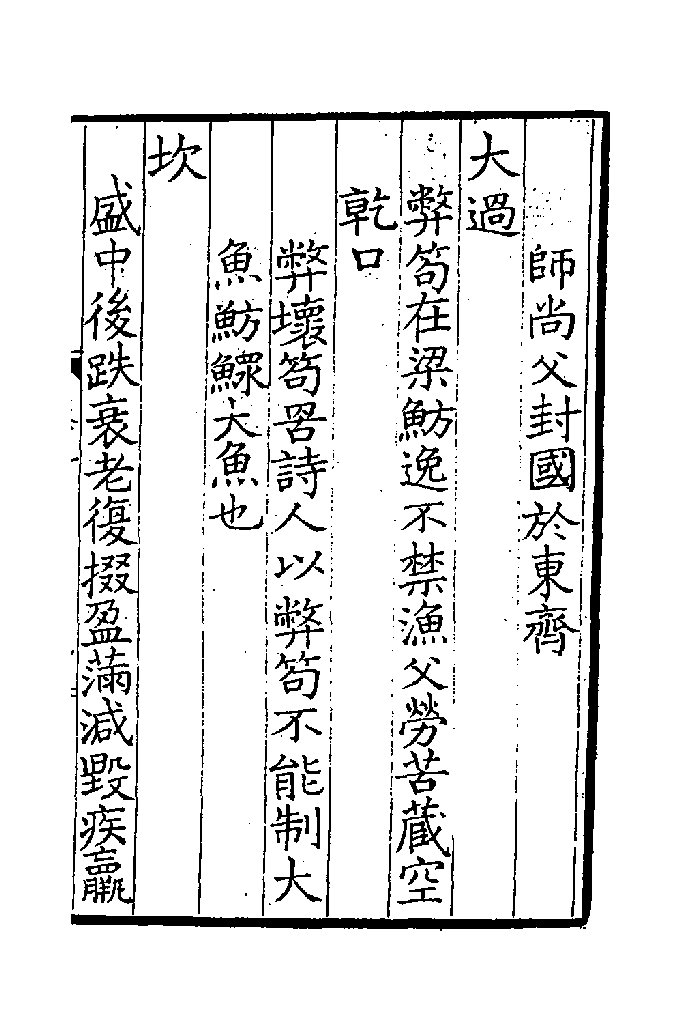 師尚父封國於東齊
大過
弊笱在梁魴逸不禁漁父勞苦蔵空
乾口
弊壞笱罟詩人以弊笱不能制大
魚魴鱮大魚也
坎
盛中後跌衰老復掇盈滿減毀疾羸